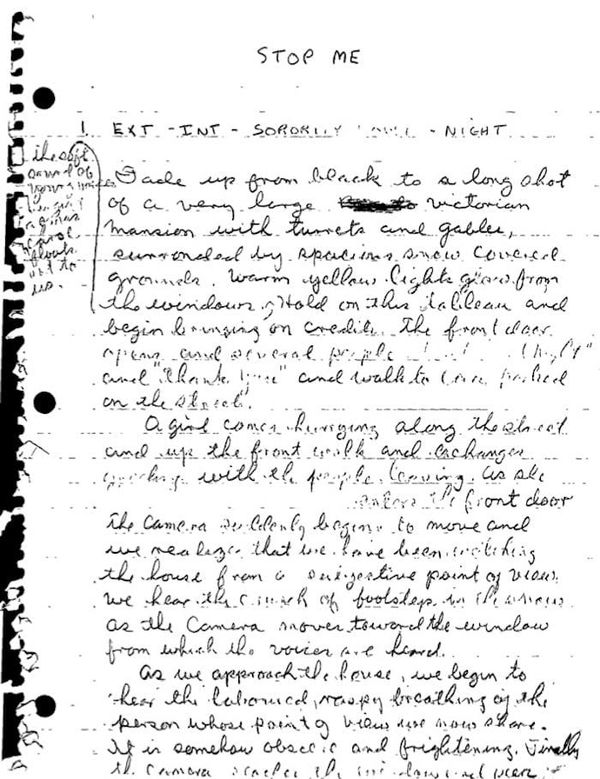 STOP ME
1. EXT - INT - SORORITY - NIGHT
the soft
sound of
young voices
singing
a
carol
floats
out to
us.
Fade up from black to a long shot
of a very large victorian
mansion with turrets and gables,
surrounded by spacious snow covered
grounds. Warm yellow lights glow from
the windows. Hold on this tableau and
begin bringing on credits. The front door
opens and several people
and "Thank You" and walk to cars parked
on the street.
A girl comes hurrying along the street
and up the front walk and exchanges
with the people leaving. As she
enters the front door
the camera suddenly begins to move and
we realize that we have been watching
the house from a point of view.
We hear the crunch of footsteps in the snow
as the camera moves toward the window
from which the voices are heard.
As we approach the house, we begin to
hear the laboured, raspy breathing of the
person whose point of view we now share.
It is somehow obscene and frightening. Finally
the camera reaches the window and